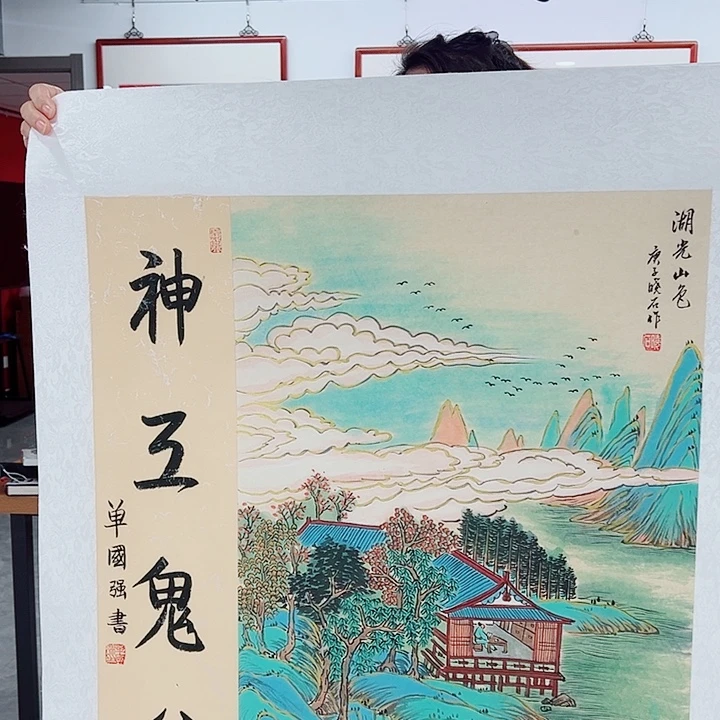 湖光山色
庚子晓石作
神工鬼
单國强書